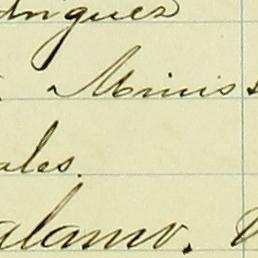 driguez
Minis
ales.
alamo.